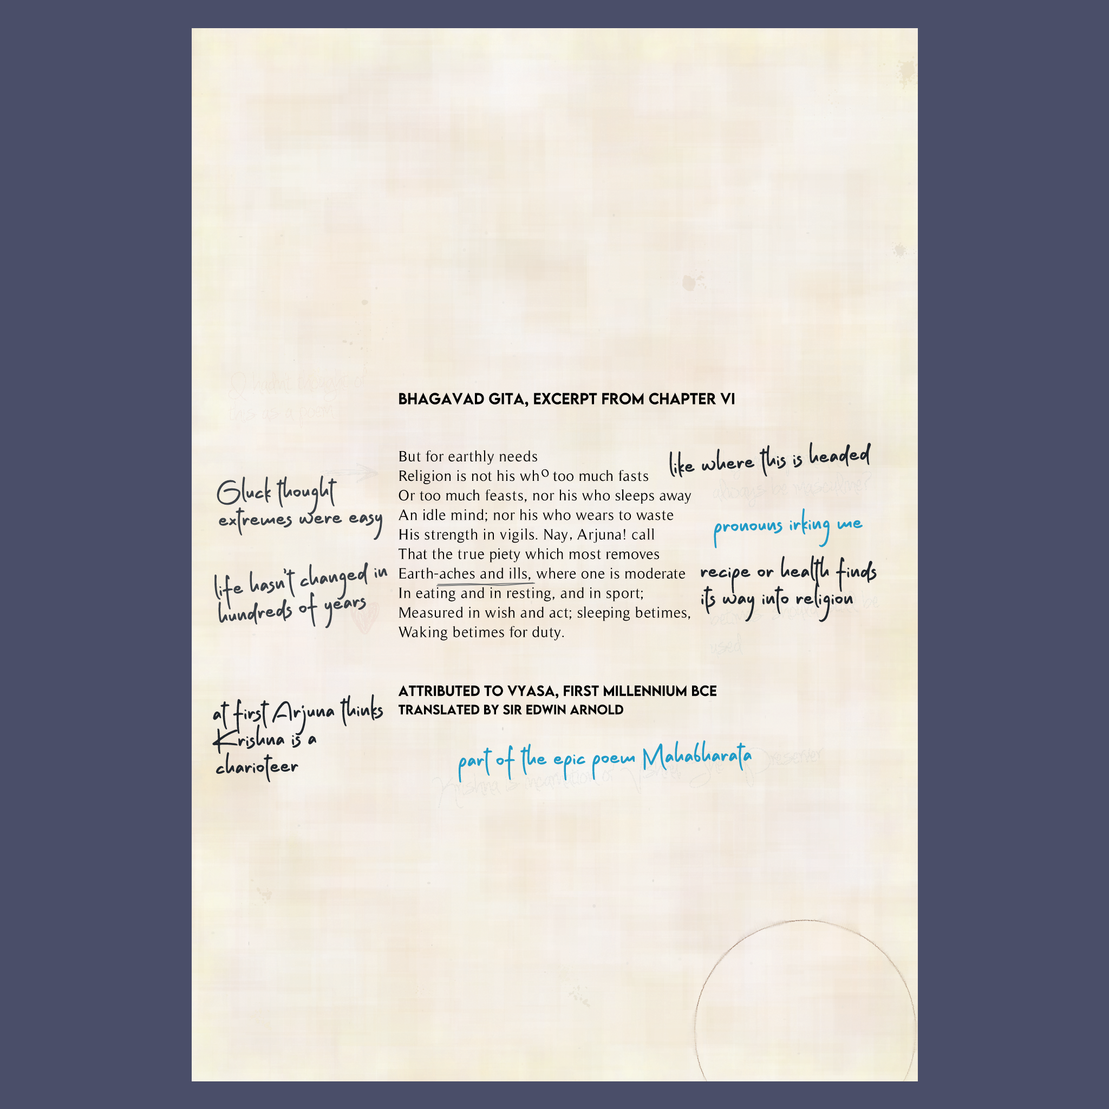 BHAGAVAD GITA, EXCERPT FROM CHAPTER VI
But for earthly needs
Religion is not his who too much fasts
Or too much feasts, nor his who sleeps away
An idle mind; nor his who wears to waste
His strength in vigils. Nay, Arjuna! call
That the true piety which most removes
Earth-aches and ills, where one is moderate
In eating and in resting, and in sport;
Measured in wish and act; sleeping betimes,
Waking betimes for duty.
ATTRIBUTED TO VYASA, FIRST MILLENNIUM BCE
TRANSLATED BY SIR EDWIN ARNOLD
like where this is headed
Gluck thought
extremes were easy
pronouns irking me
life hasn't changed in
hundreds of years
recipe or health finds
its way into religion
at first Arjuna thinks
Krishna is a
charioteer
part of the epic poem Mahabharata